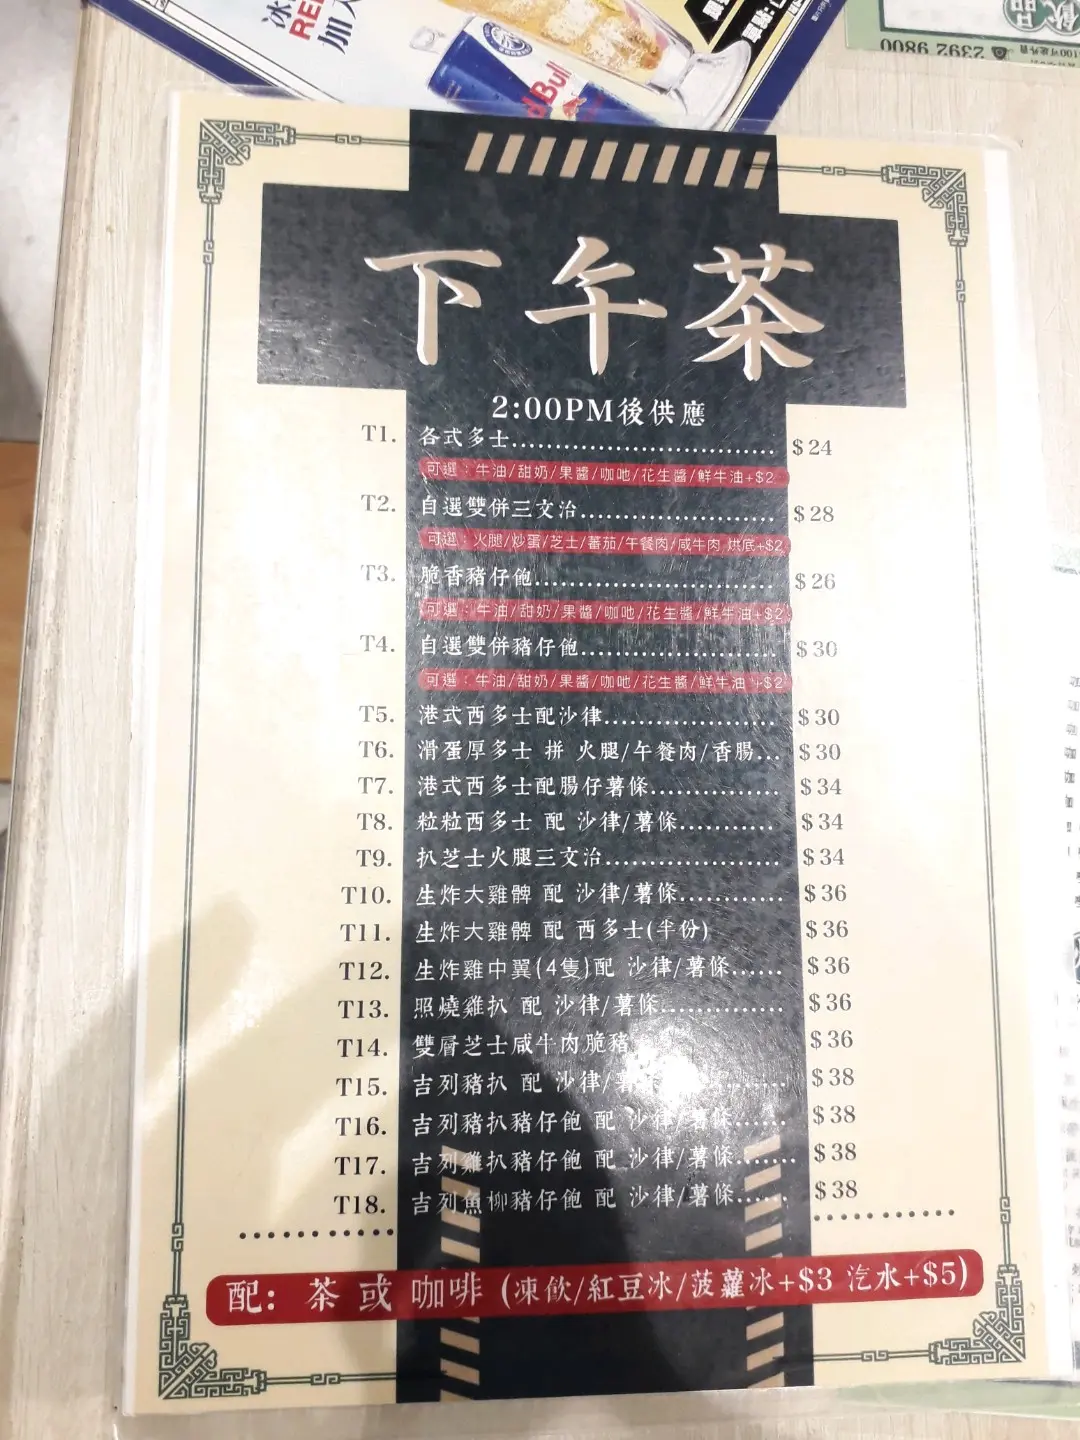 冰
RE
加
Red Bull
單點:
飲品
2392 9800
下午茶
2:00PM後供應
T1. 各式多士 $24
可選:牛油/甜奶/果醬/咖吔/花生醬/鮮牛油+$2
T2. 自選雙併三文治 $28
可選:火腿/炒蛋/芝士/蕃茄/午餐肉/咸牛肉 烘底+$2
T3. 脆香豬仔飽 $26
可選:牛油/甜奶/果醬/咖吔/花生醬/鮮牛油+$2
T4. 自選雙併豬仔飽 $30
可選:牛油/甜奶/果醬/咖吔/花生醬/鮮牛油 +$2
T5. 港式西多士配沙律 $30
T6. 滑蛋厚多士 拼 火腿/午餐肉/香腸... $30
T7. 港式西多士配腸仔薯條 $34
T8. 粒粒西多士 配 沙律/薯條 $34
T9. 扒芝士火腿三文治 $34
T10. 生炸大雞髀 配 沙律/薯條 $36
T11. 生炸大雞髀 配 西多士(半份) $36
T12. 生炸雞中翼(4隻)配 沙律/薯條 $36
T13. 照燒雞扒 配 沙律/薯條 $36
T14. 雙層芝士咸牛肉脆豬 $36
T15. 吉列豬扒 配 沙律/薯條 $38
T16. 吉列豬扒豬仔飽 配 沙律/薯條 $38
T17. 吉列雞扒豬仔飽 配 沙律/薯條 $38
T18. 吉列魚柳豬仔飽 配 沙律/薯條 $38
配: 茶 或 咖啡 (凍飲/紅豆冰/菠蘿冰+$3 汽水+$5)